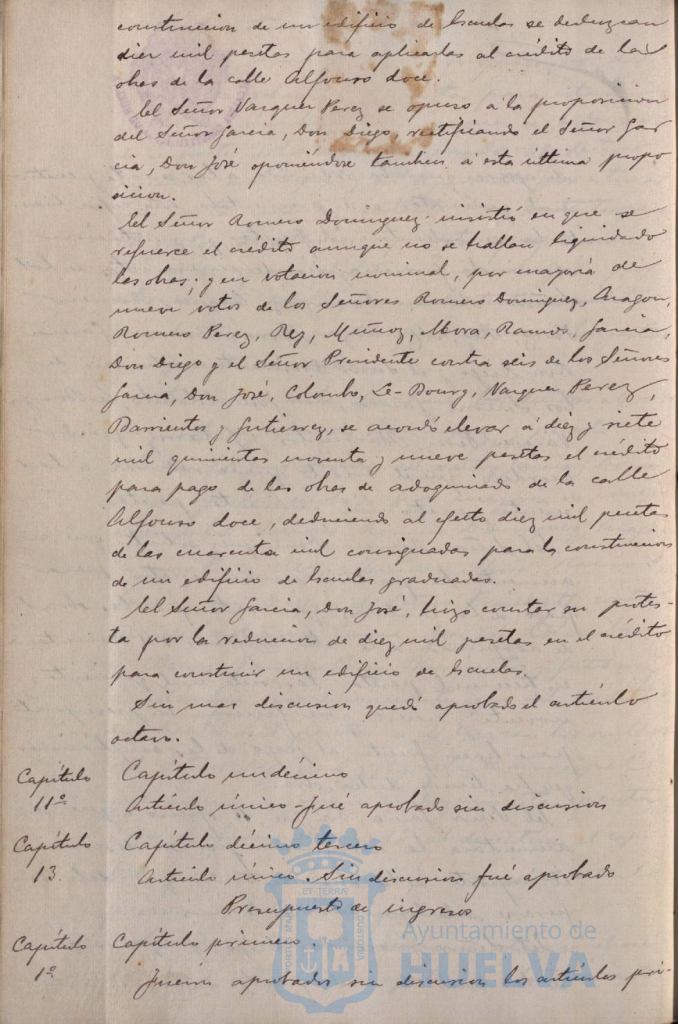 construccion de un edificio de Escuelas se deduzcan
diez mil pesetas para aplicarlas al crédito de las
obras de la calle Alfonso doce.
El Señor Vazquez Perez se opuso á la proposicion
del Señor Garcia, Don Diego, rectificando el Señor Gar
cia, Don José oponiéndose tambien á esta última propo
sicion.
El Señor Romero Dominguez insistió en que se
refuerce el crédito aunque no se hallan liquidado
las obras; y en votacion nominal, por mayoría de
nueve votos de los Señores Romero Dominguez, Aragon,
Romero Perez, Rey, Muñoz, Mora, Ramos, Garcia,
Don Diego y el Señor Presidente contra seis de los Señores
Garcia, Don José, Colombo, Le-Bourg, Vazquez Perez,
Barrientos y Gutierrez, se acordó elevar á diez y siete
mil quinientas noventa y nueve pesetas el crédito
para pago de las obras de adoquinado de la calle
Alfonso doce, deduciendo al efecto diez mil pesetas
de las cuarenta mil consignadas para la construccion
de un edificio de Escuelas graduadas.
El Señor Garcia, Don José, hizo constar su protes-
ta por la reduccion de diez mil pesetas en el crédito
para construir un edificio de Escuelas.
Sin mas discusion quedó aprobado el artículo
octavo.
Capítulo 11º
Capítulo undécimo
Artículo único - Fué aprobado sin discusion
Capítulo 13.
Capítulo décimo tercero
Artículo único. Sin discusion fué aprobado
Presupuesto de ingresos
Capítulo 1º
Capítulo primero.
Fueron aprobados sin discusion los artículos pri-
Ayuntamiento de
HUELVA